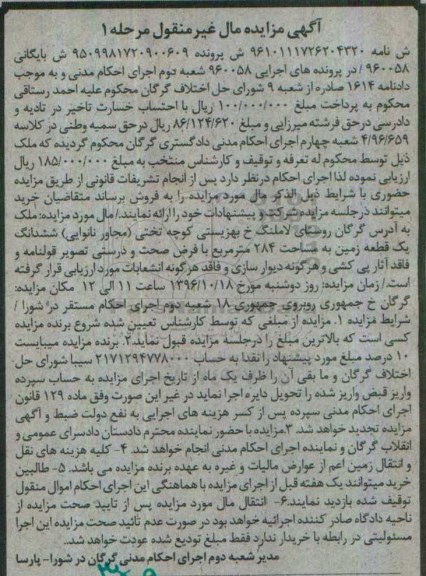 آگهی مزایده مال غیر منقول مرحله ۱
ش نامه ۹۶۱۰۱۱۱۷۲۶۲۰۴۳۲۰ ش پرونده ۹۵۰۹۹۸۱۷۲۰۹۰۰۶۰۹ ش بایگانی
۹۶۰۰۵۸ / در پرونده های اجرایی ۹۶۰۰۵۸ شعبه دوم اجرای احکام مدنی و به موجب
دادنامه ۱۶۱۴ صادره از شعبه ۹ شورای حل اختلاف گرگان محکوم علیه احمد رستاقی
محکوم به پرداخت مبلغ ۱۰۰/۰۰۰/۰۰۰ ریال با احتساب خسارت تاخیر در تادیه و
دادرسی در حق فرشته میرزایی و مبلغ ۸۶/۱۲۴/۶۲۰ ریال در حق سمیه وطنی در کلاسه
۴/۹۶/۶۵۹ شعبه چهارم اجرای احکام مدنی دادگستری گرگان محکوم گردیده که ملک
ذیل توسط محکوم له تعرفه و توقیف و کارشناس منتخب به مبلغ ۱۸۵/۰۰۰/۰۰۰ ریال
ارزیابی نموده لذا اجرای احکام درنظر دارد پس از انجام تشریفات قانونی از طریق مزایده
حضوری با شرایط ذیل الذکر مال مورد مزایده را به فروش برساند متقاضیان خرید
میتوانند در جلسه مزایده شرکت و پیشنهادات خود را ارائه نمایند./مال مورد مزایده: ملک
به آدرس گرگان روستای لاملنگ خ بهزیستی کوچه تختی (مجاور نانوایی) ششدانگ
یک قطعه زمین به مساحت ۲۸۴ مترمربع با فرض صحت و درستی تصویر قولنامه و
فاقد آثار پی کشی و هرگونه دیوار سازی و فاقد هرگونه انشعابات مورد ارزیابی قرار گرفته
است./ زمان مزایده: روز دوشنبه مورخ ۱۳۹۶/۱۰/۱۸ ساعت ۱۱ الی ۱۲ مکان مزایده:
گرگان خ جمهوری روبروی جمهوری ۱۸ شعبه دوم اجرای احکام مستقر در شورا /
شرایط مزایده ۱. مزایده از مبلغی که توسط کارشناس تعیین شده شروع برنده مزایده
کسی است که بالاترین مبلغ را درجلسه مزایده قبول نماید.۲. برنده مزایده میبایست
۱۰ درصد مبلغ مورد پیشنهاد را نقدا به حساب ۲۱۷۱۲۹۴۷۷۸۰۰۰ سیبا شورای حل
اختلاف گرگان و ما بقی آن را ظرف یک ماه از تاریخ اجرای مزایده به حساب سپرده
واریز قبض واریز شده را تحویل دایره اجرا نماید در غیر این صورت وفق ماده ۱۲۹ قانون
اجرای احکام مدنی سپرده پس از کسر هزینه های اجرایی به نفع دولت ضبط و آگهی
مزایده تجدید خواهد شد. ۳.مزایده با حضور نماینده محترم دادستان دادسرای عمومی و
انقلاب گرگان و نماینده اجرای احکام مدنی انجام خواهد شد. ۴- کلیه هزینه های نقل
و انتقال زمین اعم از عوارض مالیات و غیره به عهده برنده مزایده می باشد. ۵- طالبین
خرید میتوانند یک هفته قبل از اجرای مزایده با هماهنگی این اجرای احکام اموال منقول
توقیف شده بازدید نمایند.۶- انتقال مال مورد مزایده پس از تایید صحت مزایده از
ناحیه دادگاه صادر کننده اجرائیه خواهد بود در صورت عدم تائید صحت مزایده این اجرا
مسئولیتی در رابطه با خریدار ندارد فقط مبلغ تودیع شده عودت خواهد شد.
مدیر شعبه دوم اجرای احکام مدنی گرگان در شورا- پارسا